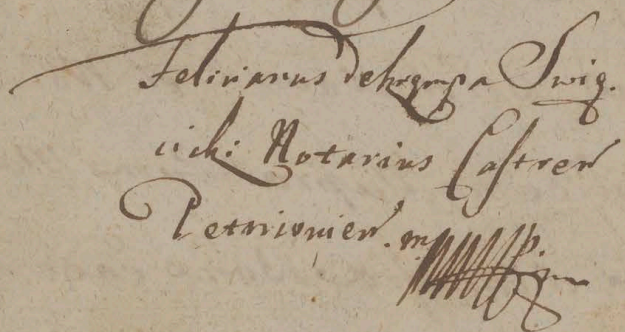 Felicianus de Krępa Swię.
cicki Notarius Castren
Petricovien. mp